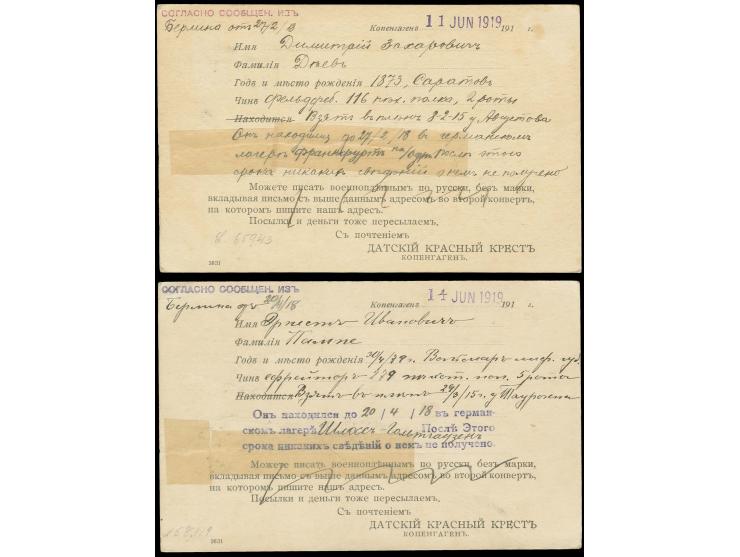 СОГЛАСНО СООБЩЕН. ИЗЪ
Берлина от 27/2/18
Копенгагенъ 11 JUN 1919 191 г.
Имя Димитрій Захаровичъ
Фамилія
Годъ и мѣсто рожденія 1873, Саратовъ
Чинъ Фельдфеб. 116 пѣх. полка, 2 роты
Находится Взятъ въ плѣнъ 8-2-15 у Августова
Онъ находился до 27/2/18 в германскомъ
лагерѣ Франкфуртъ на/Одерѣ. Послѣ этого
срока никакихъ свѣдѣній о немъ не получено
Можете писать военноплѣннымъ по русски, безъ марки,
вкладывая письмо съ выше даннымъ адресомъ во второй конвертъ,
на которомъ пишите нашъ адресъ.
Посылки и деньги тоже пересылаемъ.
Съ почтеніемъ
ДАТСКІЙ КРАСНЫЙ КРЕСТЪ
КОПЕНГАГЕНЪ.
3631
СОГЛАСНО СООБЩЕН. ИЗЪ
Берлина
Копенгагенъ 14 JUN 1919 191 г.
Имя Эрнестъ Ивановичъ
Фамилія Пампе
Годъ и мѣсто рожденія Вольмаръ лифл. губ.
Чинъ Ефрейторъ 5 роты
Находится Взятъ въ плѣнъ у Таурогена
Онъ находился до 20/4/18 въ герман-
скомъ лагерѣ Послѣ Этого
срока никакихъ свѣдѣній о немъ не получено.
Можете писать военноплѣннымъ по русски, безъ марки,
вкладывая письмо съ выше даннымъ адресомъ во второй конвертъ,
на которомъ пишите нашъ адресъ.
Посылки и деньги тоже пересылаемъ.
Съ почтеніемъ
ДАТСКІЙ КРАСНЫЙ КРЕСТЪ
КОПЕНГАГЕНЪ.
3631